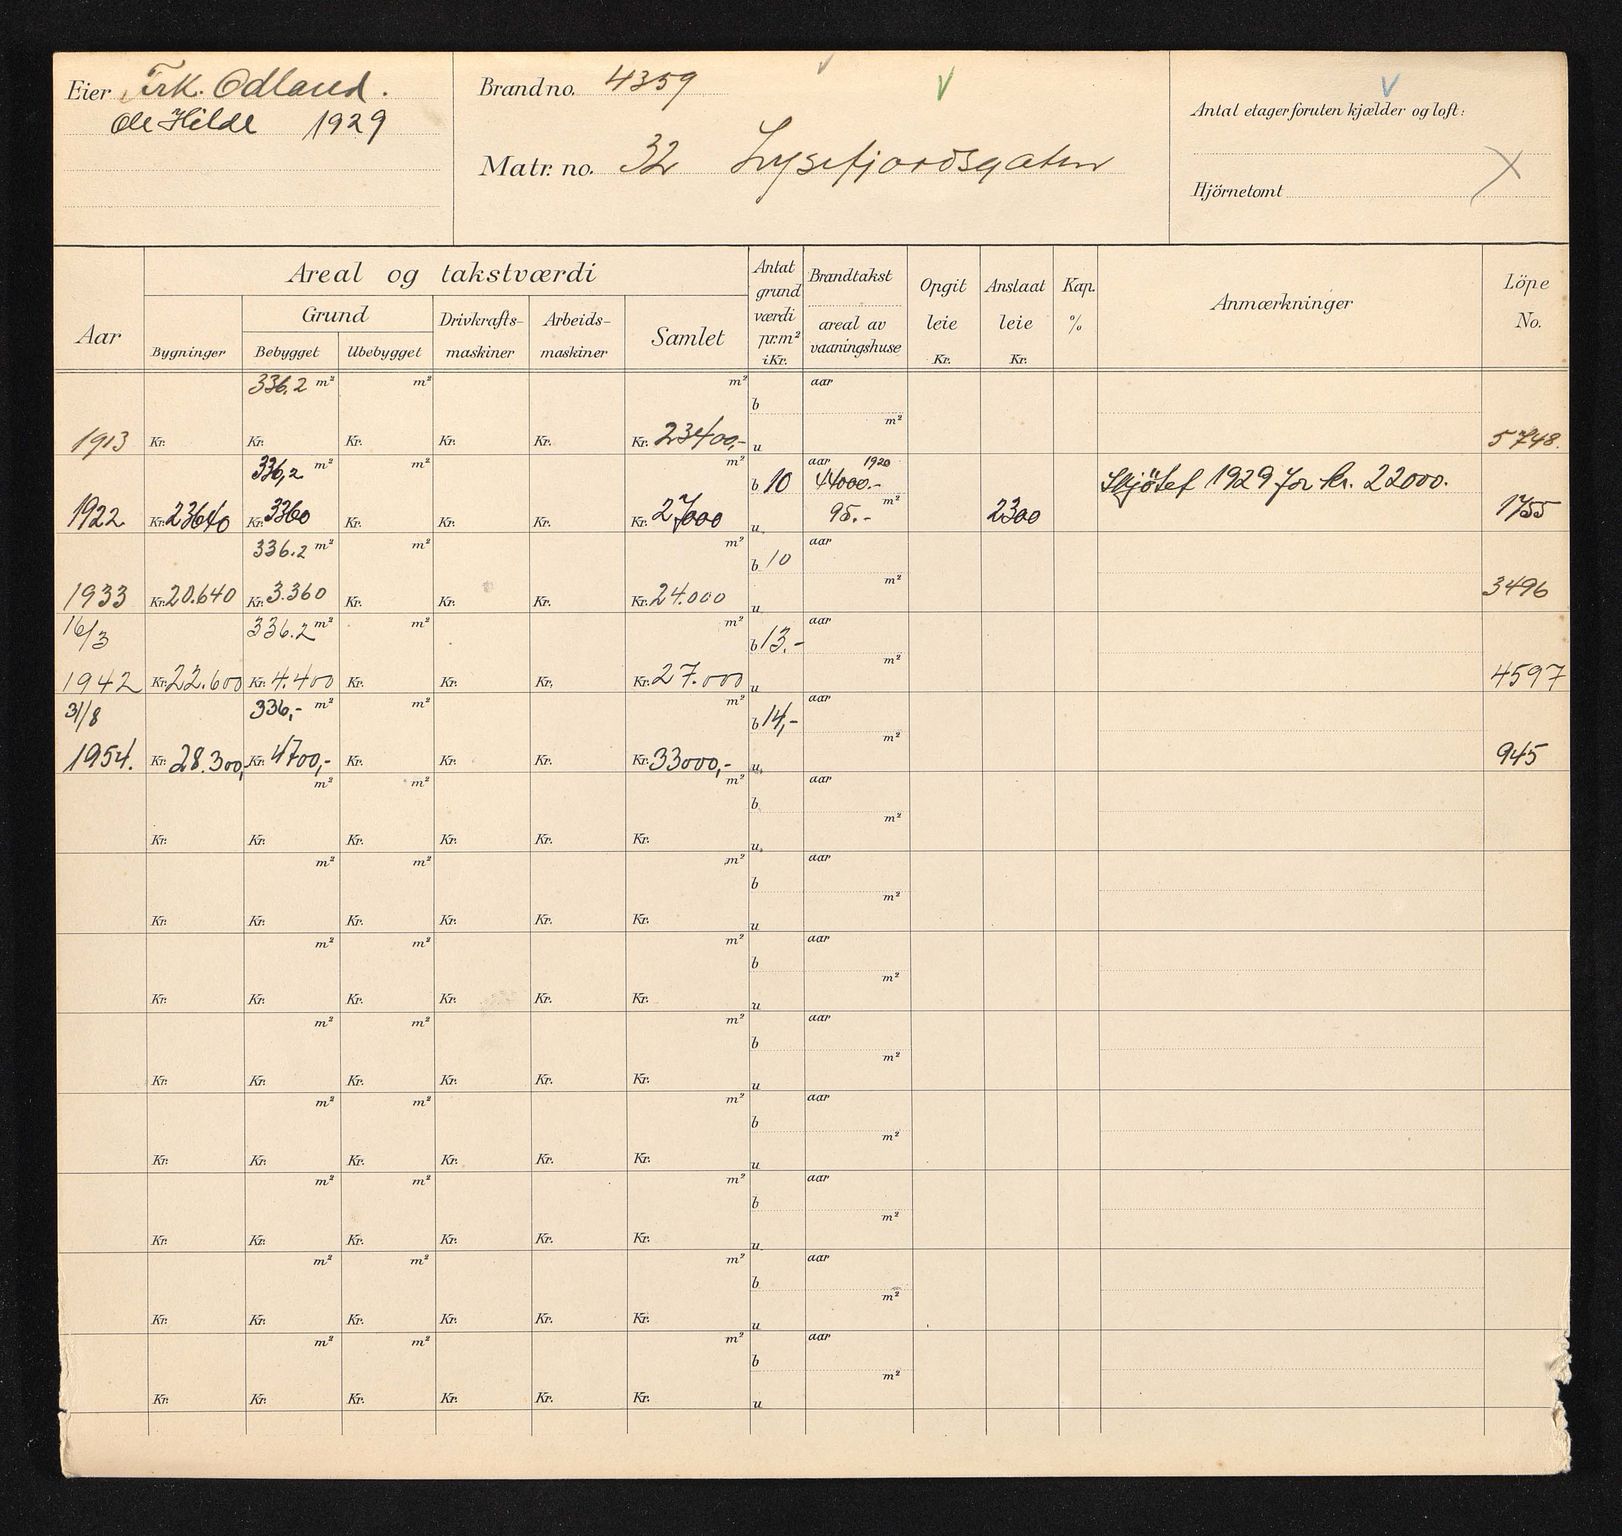 Eier Frk. Odland.
Ole Hilde 1929
Brand no. 4359
Matr. no. 32 Lysefjordsgaten
Antal etager foruten kjælder og loft:
Hjörnetomt
Aar
Areal og takstværdi
Bygninger
Grund
Bebygget Ubebygget
Drivkrafts-maskiner
Arbeids-maskiner
Samlet
Antat grund værdi pr. m² i Kr.
Brandtakst
areal av vaaningshuse
Opgit leie Kr.
Anslaat leie Kr.
Kap. %
Anmærkninger
Löpe No.
336.2 m² m² m² aar
b
m²
1913 Kr. Kr. Kr. Kr. Kr. Kr. 23400,- u 5748.
336,2 m² m² m² aar 1920
b 10 44000.- Skjötet 1929 for kr. 22000.
1922 Kr. 23640 Kr. 3360 Kr. Kr. Kr. Kr. 27000 u 95.- m² 2300 1755
336.2 m² m² m² aar
b 10
m²
1933 Kr. 20.640 Kr. 3.360 Kr. Kr. Kr. Kr. 24.000 u 3496
16/3 336.2 m² m² m² aar
b 13.-
m²
1942 Kr. 22.600 Kr. 4.400 Kr. Kr. Kr. Kr. 27.000 u 4597
31/8 336,- m² m² m² aar
b 14,-
m²
1954. Kr. 28.300, Kr. 4700,- Kr. Kr. Kr. Kr. 33000,- u 945
m² m² m² aar
b
m²
Kr. Kr. Kr. Kr. Kr. Kr. u
m² m² m² aar
b
m²
Kr. Kr. Kr. Kr. Kr. Kr. u
m² m² m² aar
b
m²
Kr. Kr. Kr. Kr. Kr. Kr. u
m² m² m² aar
b
m²
Kr. Kr. Kr. Kr. Kr. Kr. u
m² m² m² aar
b
m²
Kr. Kr. Kr. Kr. Kr. Kr. u
m² m² m² aar
b
m²
Kr. Kr. Kr. Kr. Kr. Kr. u
m² m² m² aar
b
m²
Kr. Kr. Kr. Kr. Kr. Kr. u
m² m² m² aar
b
m²
Kr. Kr. Kr. Kr. Kr. Kr. u